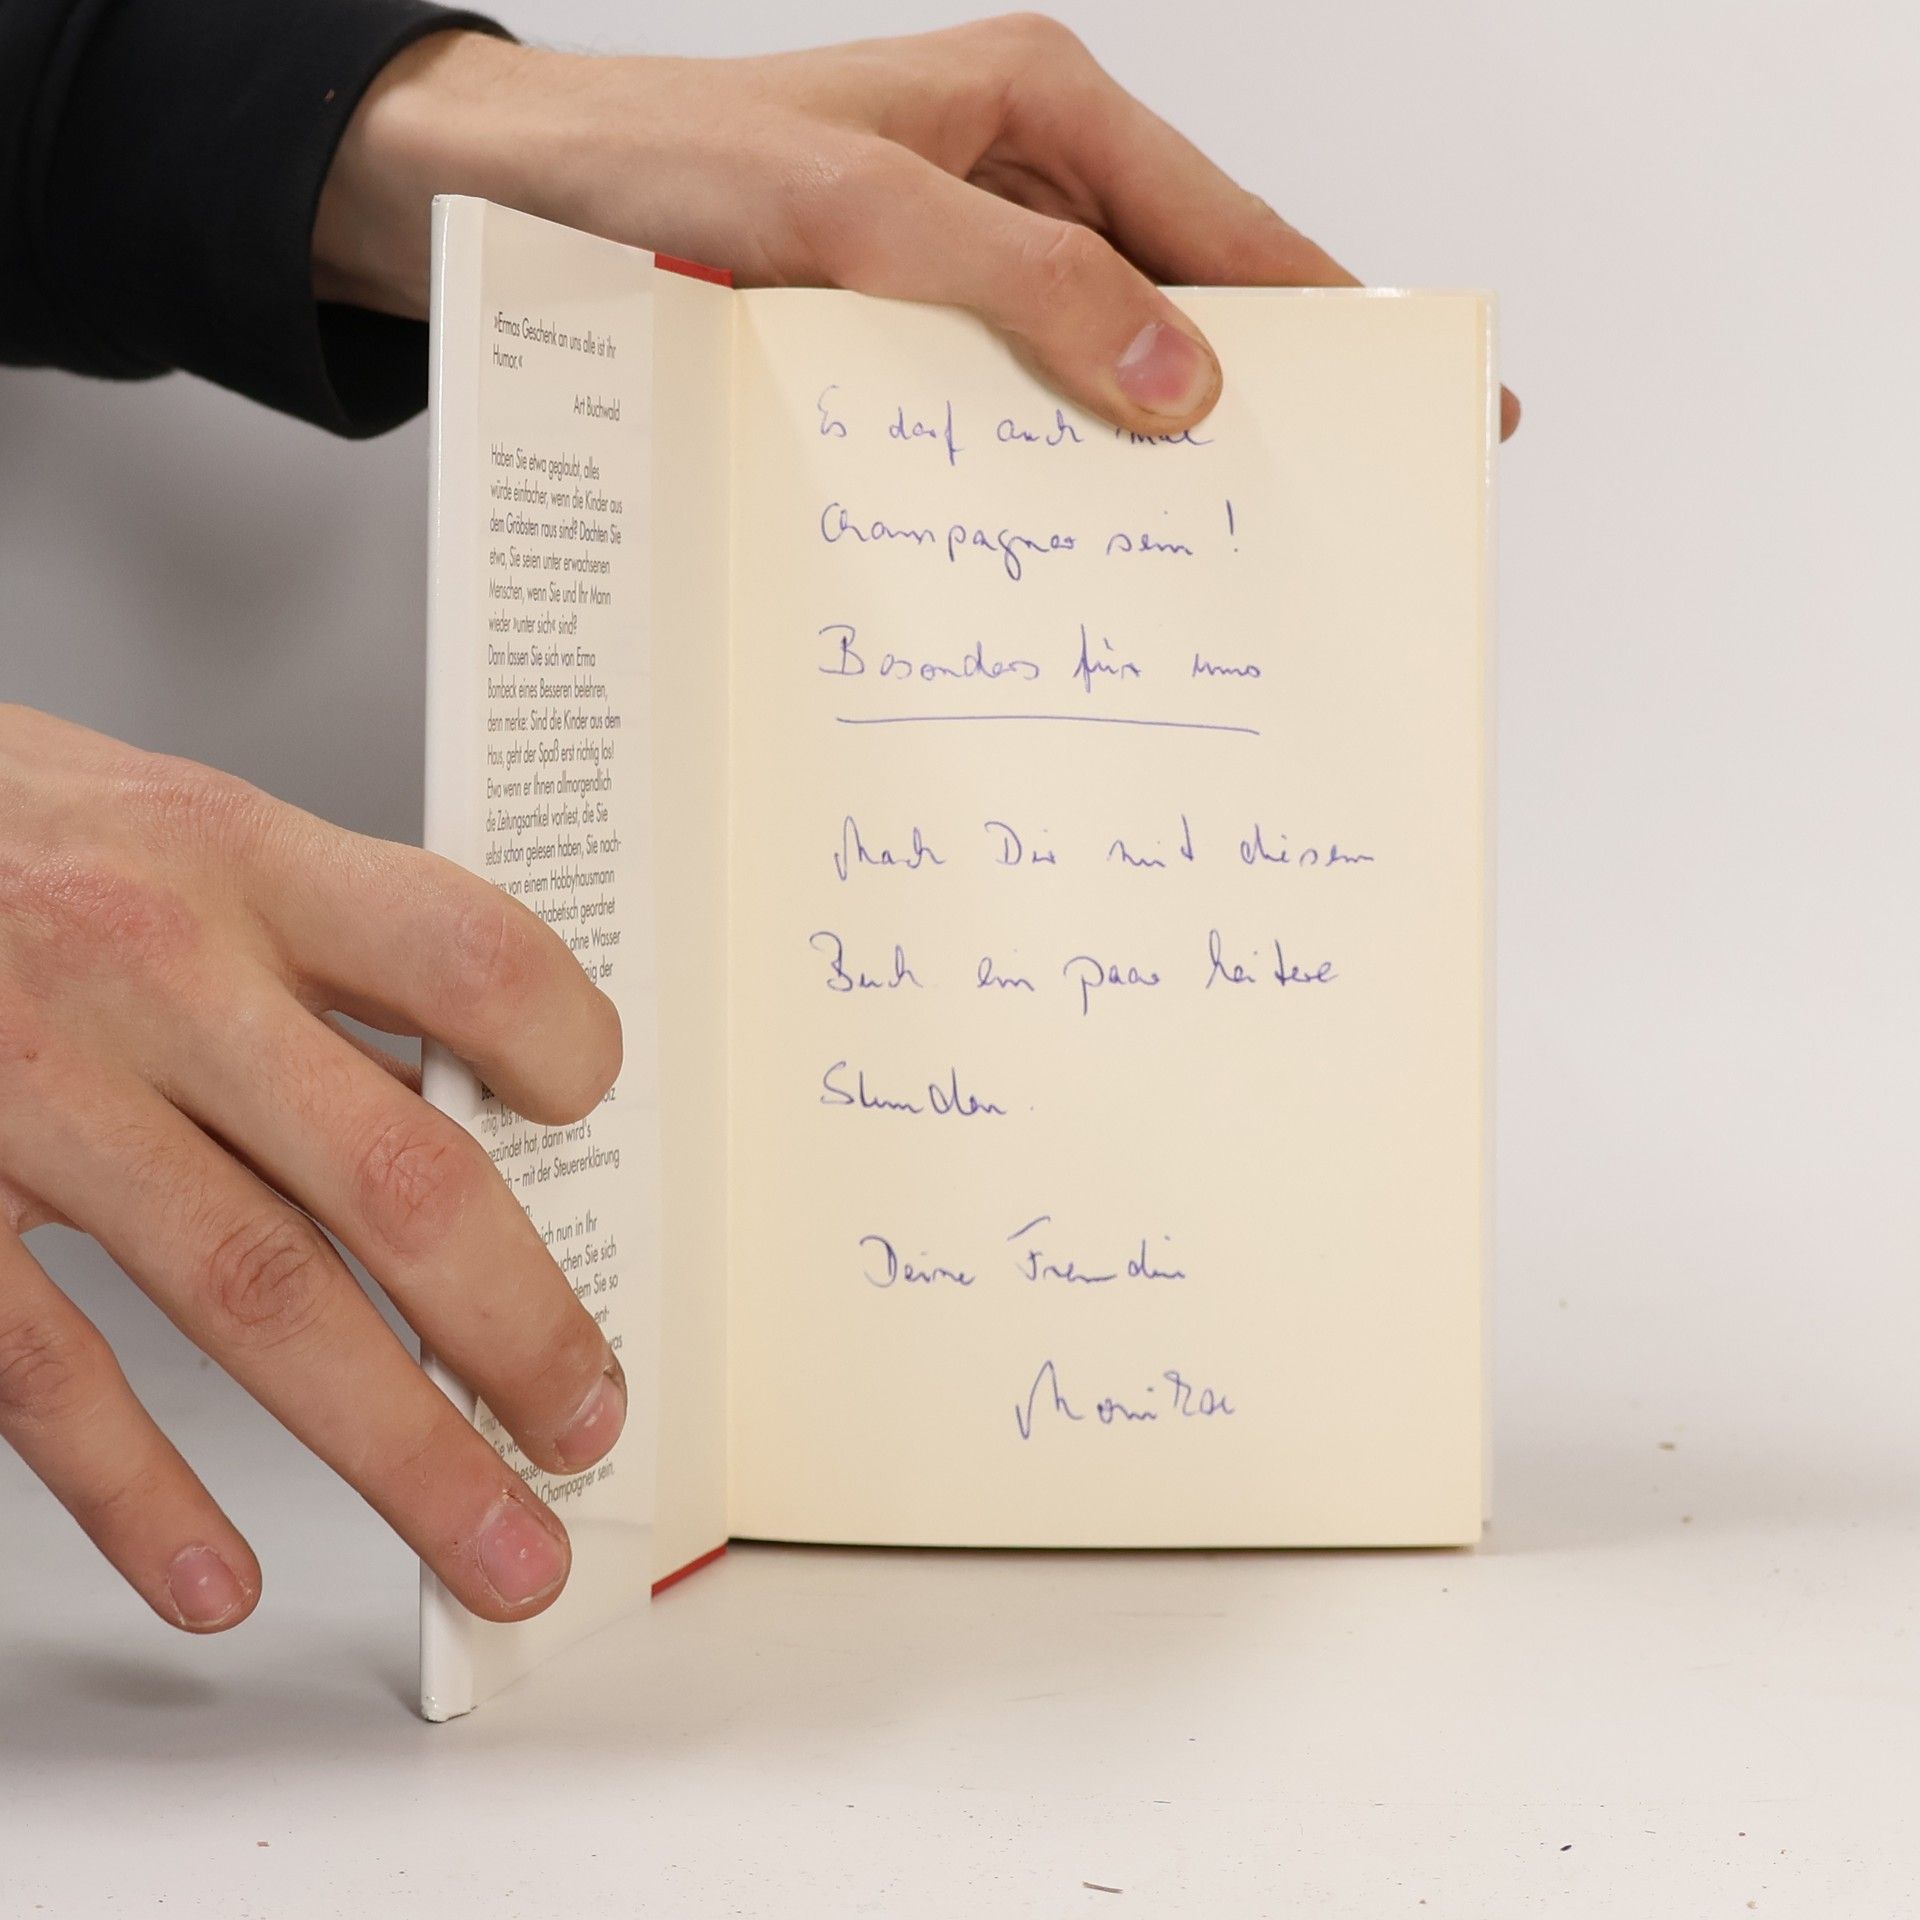 »Ermas Geschenk an uns alle ist ihr
Humor.«
Art Buchwald
Haben Sie etwa geglaubt, alles
würde einfacher, wenn die Kinder aus
dem Gröbsten raus sind? Dachten Sie
etwa, Sie seien unter erwachsenen
Menschen, wenn Sie und Ihr Mann
wieder »unter sich« sind?
Dann lassen Sie sich von Erma
Bombeck eines Besseren belehren,
denn merke: Sind die Kinder aus dem
Haus, geht der Spaß erst richtig los!
Etwa wenn er Ihnen allmorgendlich
die Zeitungsartikel vorliest, die Sie
selbst schon gelesen haben, Sie nach-
von einem Hobbyhausmann
geordnet
ohne Wasser
der
ruhig, bis
hat, dann wird's
– mit der Steuererklärung
nun in Ihr
Sie sich
dem Sie so
ent-
Erma
Sie
Champagner sein.
Es darf auch mal
Champagner sein!
Besonders für uns
Mach Dir mit diesem
Buch ein paar heitere
Stunden.
Deine Freundin
Monika